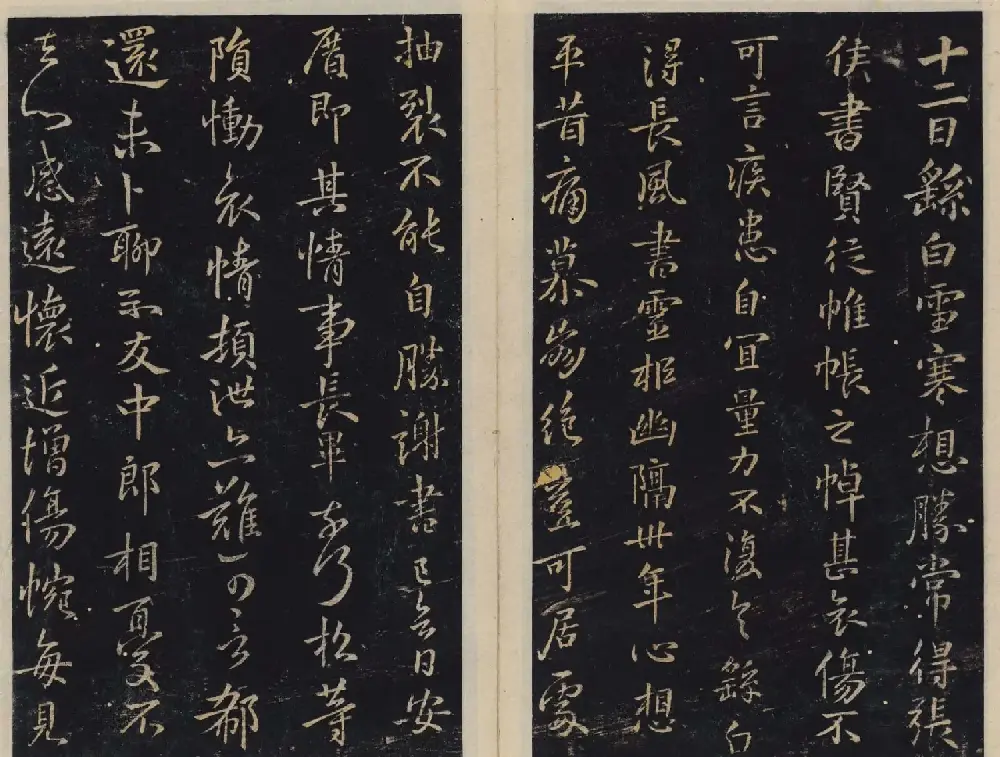 十二日繇白雪寒想勝常得張
侯書賢從帷帳之悼甚哀傷不
可言疾患自宜量力不復具繇白
得長風書靈柩幽隔卅年心想
平昔痛慕崩絕豈可居處
抽裂不能自勝謝書已令日安
厝即其情事長畢
隕慟哀情頓泄亦難可言郗
還未卜聊示友中郎相憂不
去心感遠懷近增傷惋每見